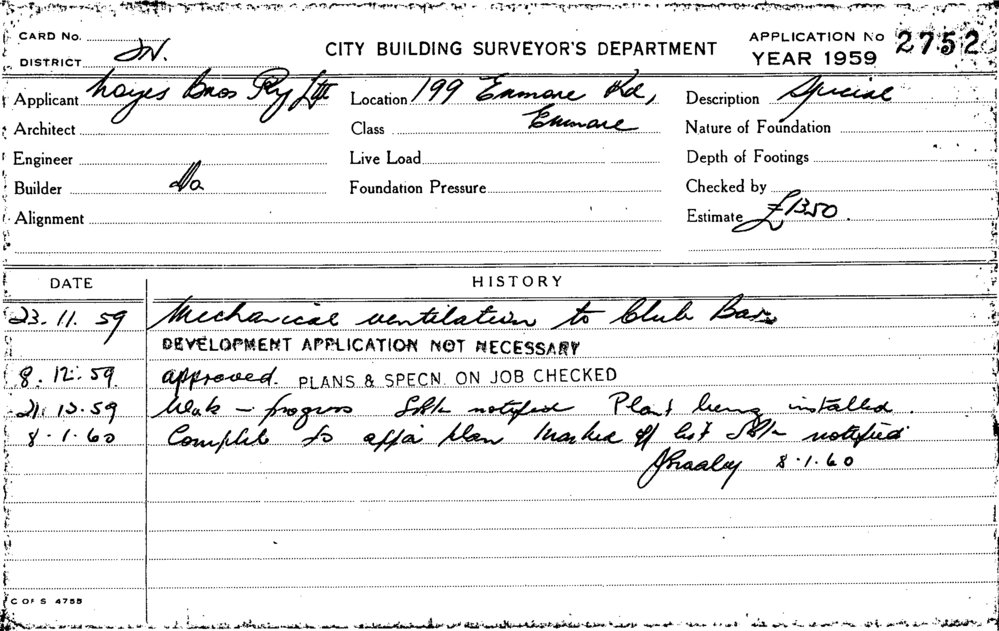 CARD No.
DISTRICT
CITY BUILDING SURVEYOR'S DEPARTMENT
APPLICATION No 2752
YEAR 1959
Applicant Noyes Bros Pty Ltd
Location 199 Enmore Rd,
Enmore
Description Special
Architect
Class
Nature of Foundation
Engineer
Live Load
Depth of Footings
Builder Do
Foundation Pressure
Checked by
Alignment
Estimate £1350.
DATE HISTORY
23.11.59 Mechanical ventilation to Club Bar
DEVELOPMENT APPLICATION NOT NECESSARY
8.12.59. approved. PLANS & SPECN. ON JOB CHECKED
21.12.59 Work - progress notified Plant being installed.
8.1.60 Complete to plan Marked off list notified
8.1.60
C OF S 4755